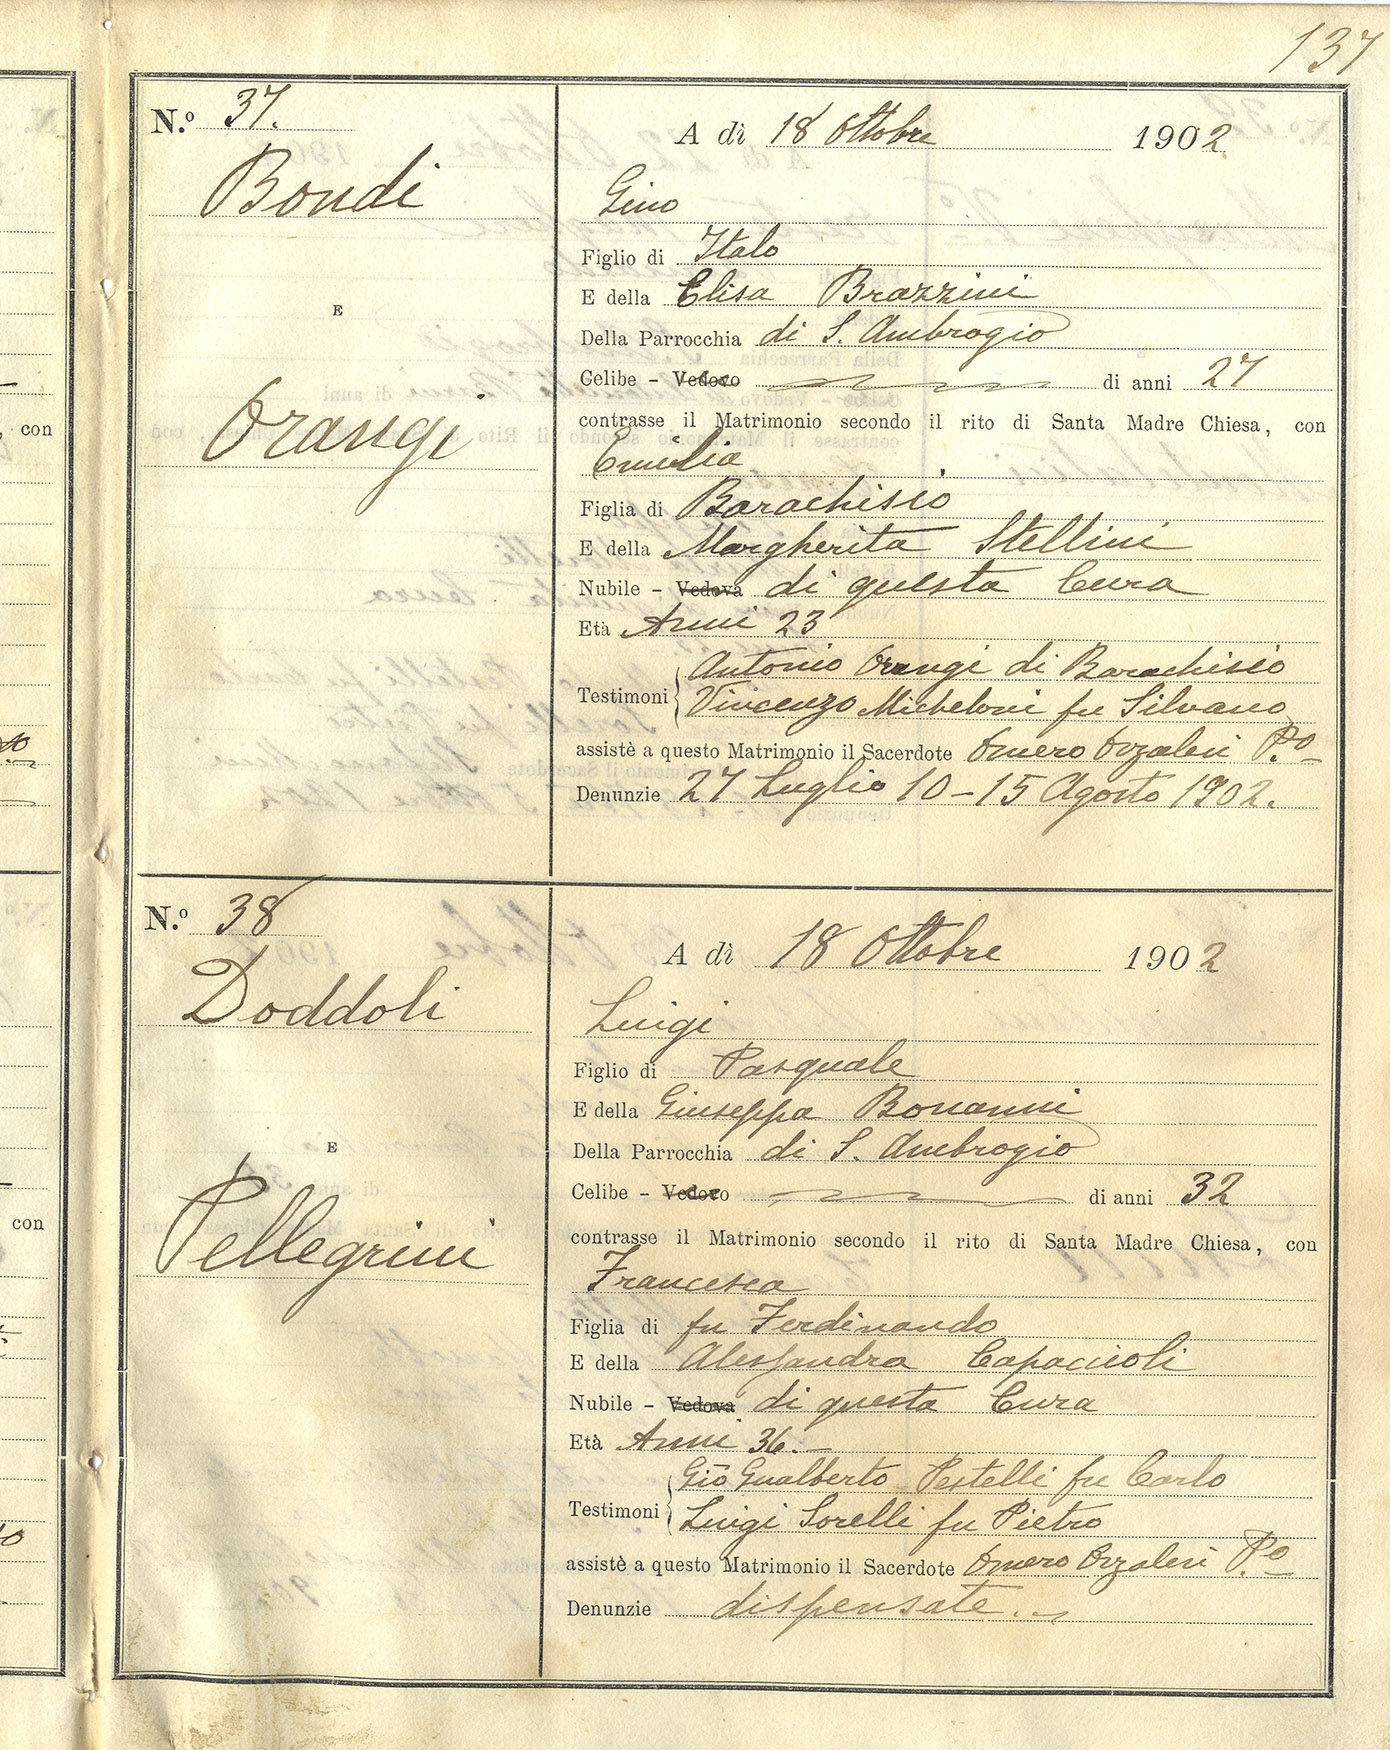 137
N.º 37.
Bondi
E
Orangi
A dì 18 Ottobre 1902
Gino
Figlio di Italo
E della Elisa Brazzini
Della Parrocchia di S. Ambrogio
Celibe - Vedovo di anni 27
contrasse il Matrimonio secondo il rito di Santa Madre Chiesa, con
Emilia
Figlia di Barachisio
E della Margherita Stellini
Nubile - Vedova di questa Cura
Età Anni 23
Testimoni { Antonio Orangi di Barachisio
Vincenzo Micheloni fu Silvano
assistè a questo Matrimonio il Sacerdote Omero Orzalesi P.º
Denunzie 27 Luglio 10-15 Agosto 1902.
N.º 38
Doddoli
E
Pellegrini
A dì 18 Ottobre 1902
Luigi
Figlio di Pasquale
E della Giuseppa Bonanni
Della Parrocchia di S. Ambrogio
Celibe - Vedovo di anni 32
contrasse il Matrimonio secondo il rito di Santa Madre Chiesa, con
Francesca
Figlia di fu Ferdinando
E della Alessandra Capaccioli
Nubile - Vedova di questa Cura
Età Anni 36.-
Testimoni { Gio Gualberto Pestelli fu Carlo
Luigi Sorelli fu Pietro
assistè a questo Matrimonio il Sacerdote Omero Orzalesi P.º
Denunzie dispensate.
con
con